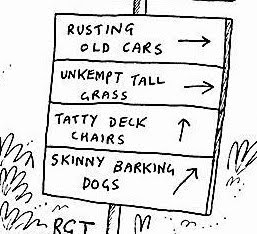 RUSTING
OLD CARS →
UNKEMPT TALL
GRASS →
TATTY DECK
CHAIRS ↑
SKINNY BARKING
DOGS ↗
RGT